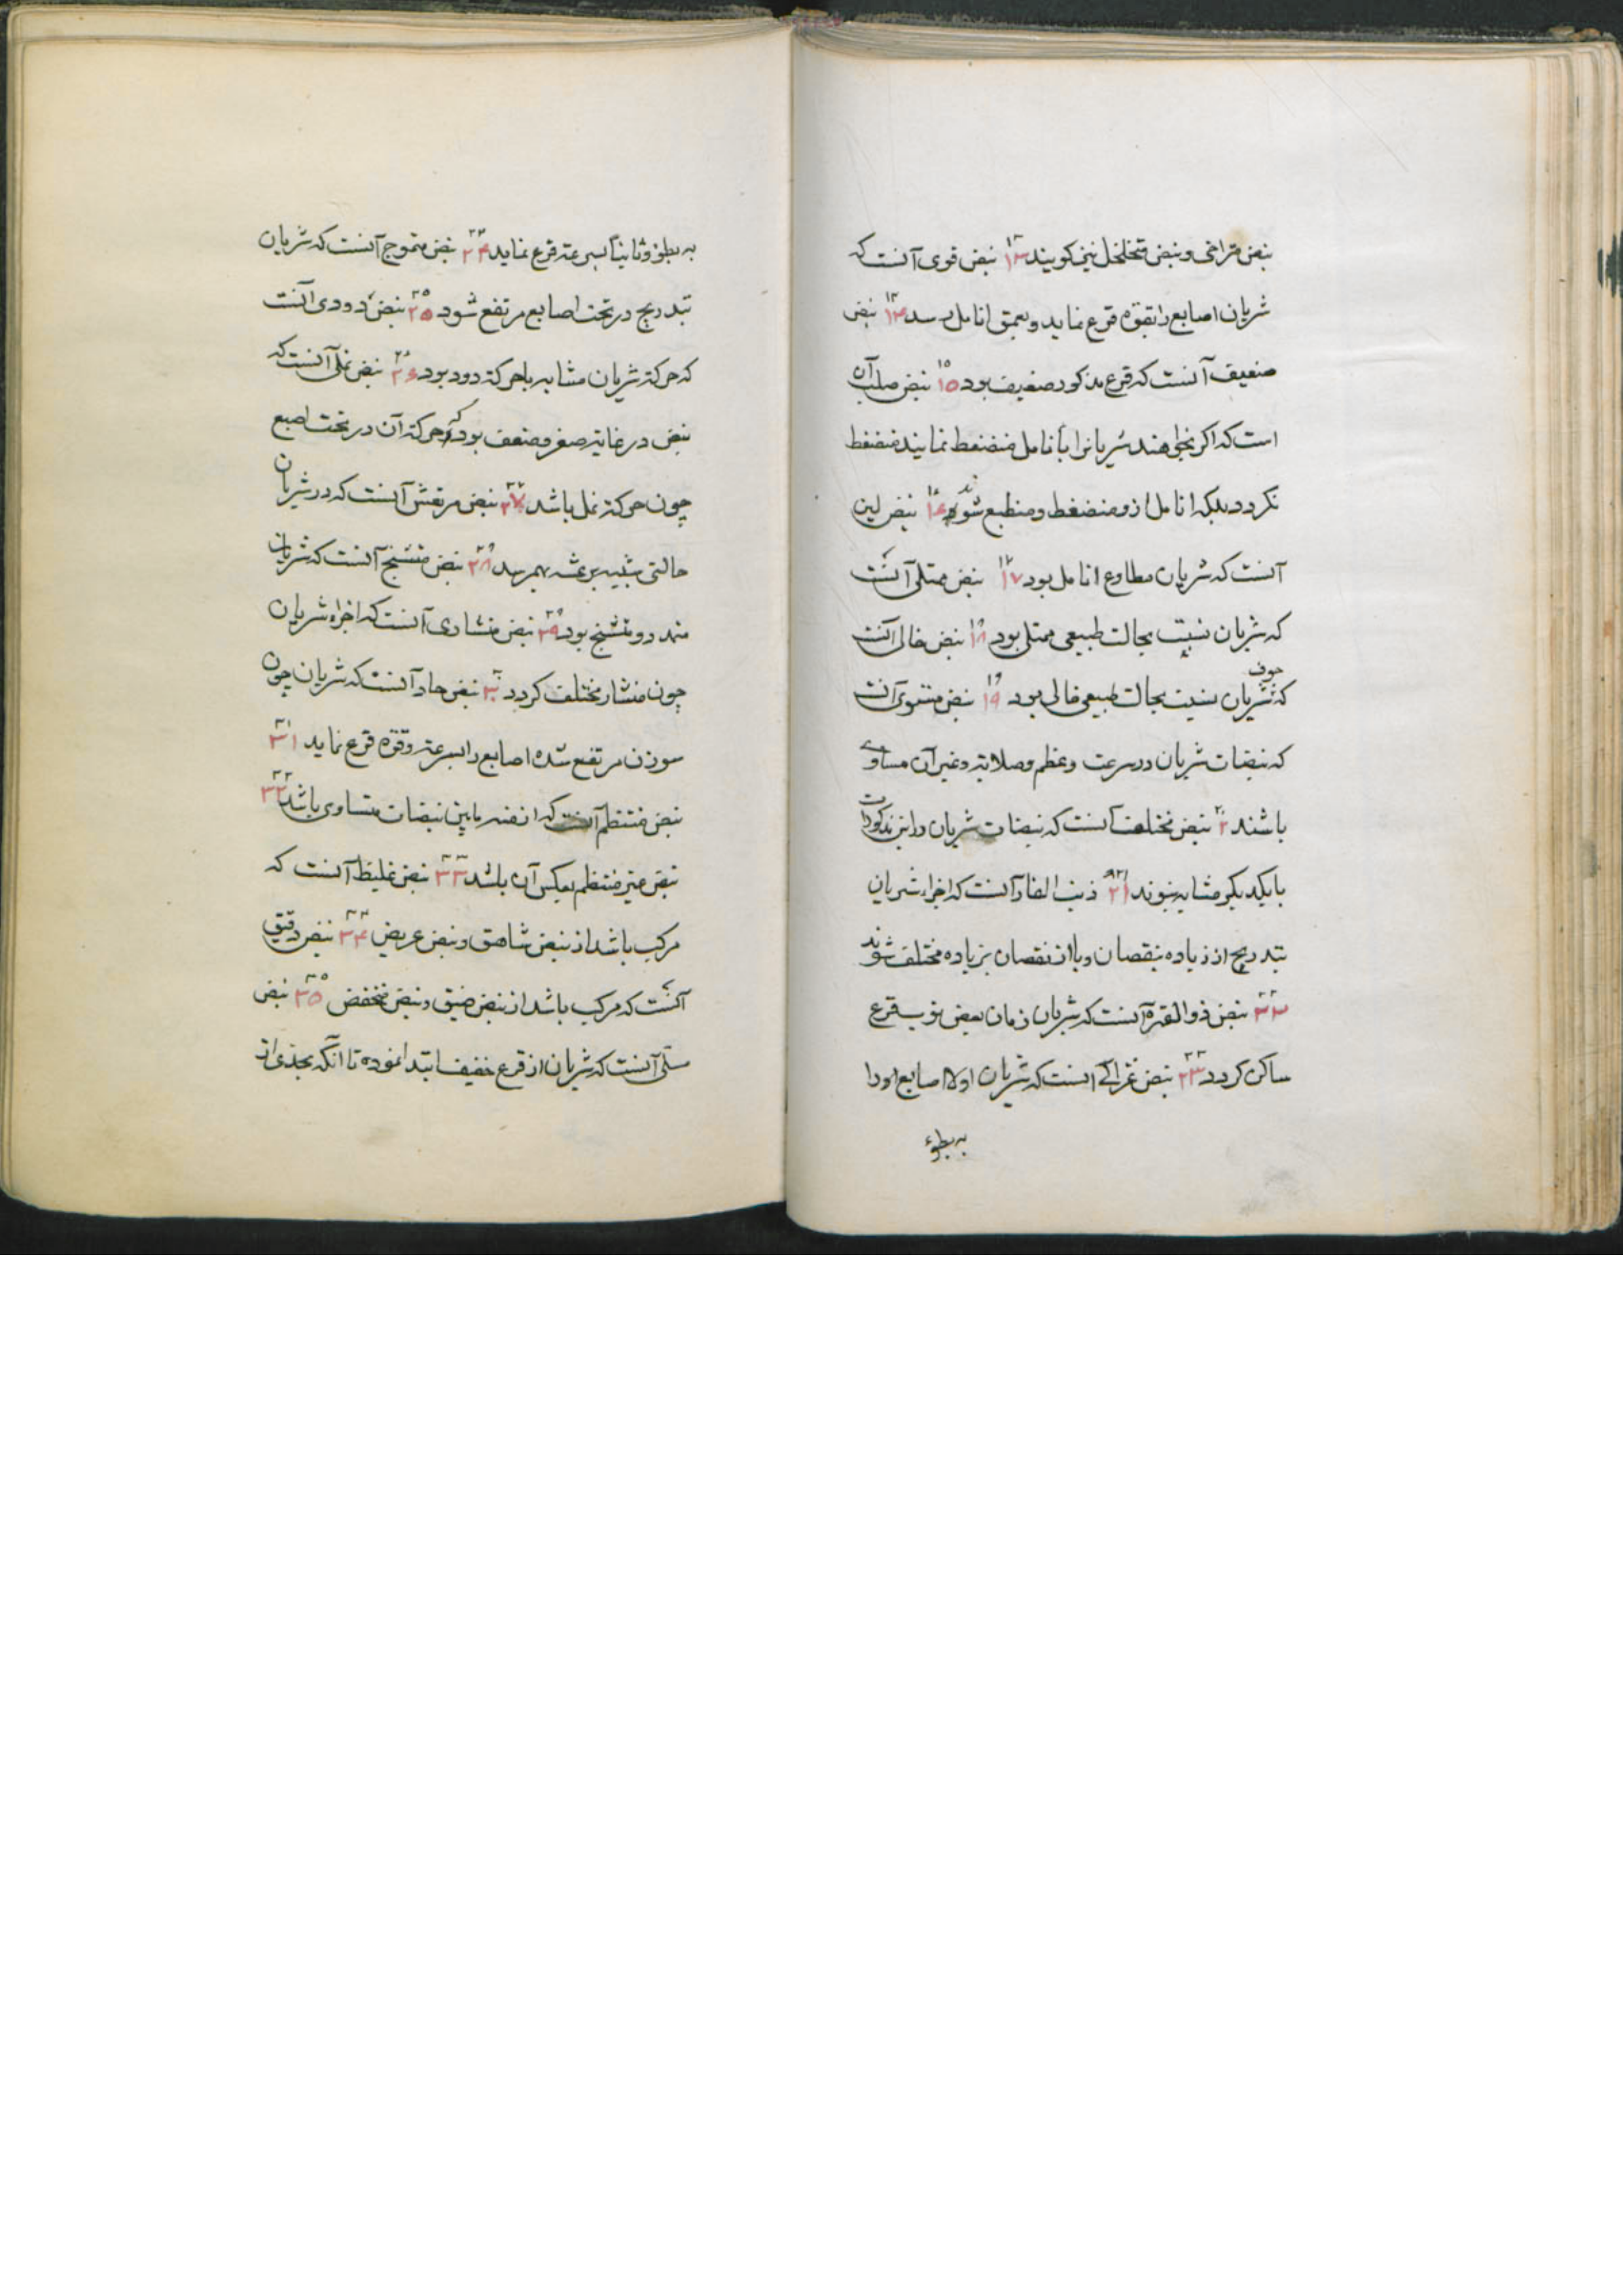 نبض متراخی و نبض متخلخل نیز کویند ۱۳ نبض قوی آنست که
شریان اصابع را بقوه قرع نماید و بعمق انامل رسد ۱۴ نبض
ضعیف آنست که قرع مذکور ضعیف بود ۱۵ نبض صلب آن
است که اکر بخواهند شریانرا بأنامل منضغط نمایند منضغط
نکردد بلکه انامل ازو منضغط و منطبع شوند ۱۶ نبض لین
آنست که شریان مطاوع انامل بود ۱۷ نبض ممتلی آنست
که شریان نسبت بحالت طبیعی ممتلی بود ۱۸ نبض خالی آنست
که جوف شریان نسبت بحالت طبیعی خالی بود ۱۹ نبض مستوی آنست
که نبضات شریان در سرعت و عظم و صلابة و غیر آن مساوی
باشند ۲۰ نبض مختلف آنست که نبضات شریان در این مذکورات
با یکدیکر مشابه نبوند ۲۱ ذنب الفار آنست که اجزاء شریان
بتدریج از زیاده بنقصان و یا از نقصان بزیاده مختلف شوند
۲۲ نبض ذو الفترة آنست که شریان زمان بعض نوب قرع
ساکن کردد ۲۳ نبض غزالی آنست که شریان اولا اصابع را
به بطوء
به بطوء و ثانیاً بسرعة قرع نماید ۲۴ نبض متموج آنست که شریان
بتدریج در تحت اصابع مرتفع شود ۲۵ نبض دودی آنست
که حرکة شریان مشابه با حرکة دود بود ۲۶ نبض نملی آنست که
نبض در غایة صغر و ضعف بود که حرکة آن در تحت اصبع
چون حرکة نمل باشد ۲۷ نبض مرتعش آنست که در شریان
حالتی شبیه برعشه بهم رسد ۲۸ نبض متشنج آنست که شریان
متمدد و متشنج بود ۲۹ نبض منشاری آنست که اجزاء شریان
چون منشار مختلف کردد ۳۰ نبض حاد آنست که شریان چون
سوزن مرتفع شده اصابع را بسرعة و قوة قرع نماید ۳۱
نبض منتظم آنست که ازمنه مابین نبضات متساوی باشد ۳۲
نبض غیر منتظم بعکس آن باشد ۳۳ نبض غلیظ آنست که
مرکب باشد از نبض شاهق و نبض عریض ۳۴ نبض دقیق
آنست که مرکب باشد از نبض ضیق و نبض منخفض ۳۵ نبض
مسلی آنست که شریان از قرع خفیف ابتدا نموده تا آنکه بحدی از